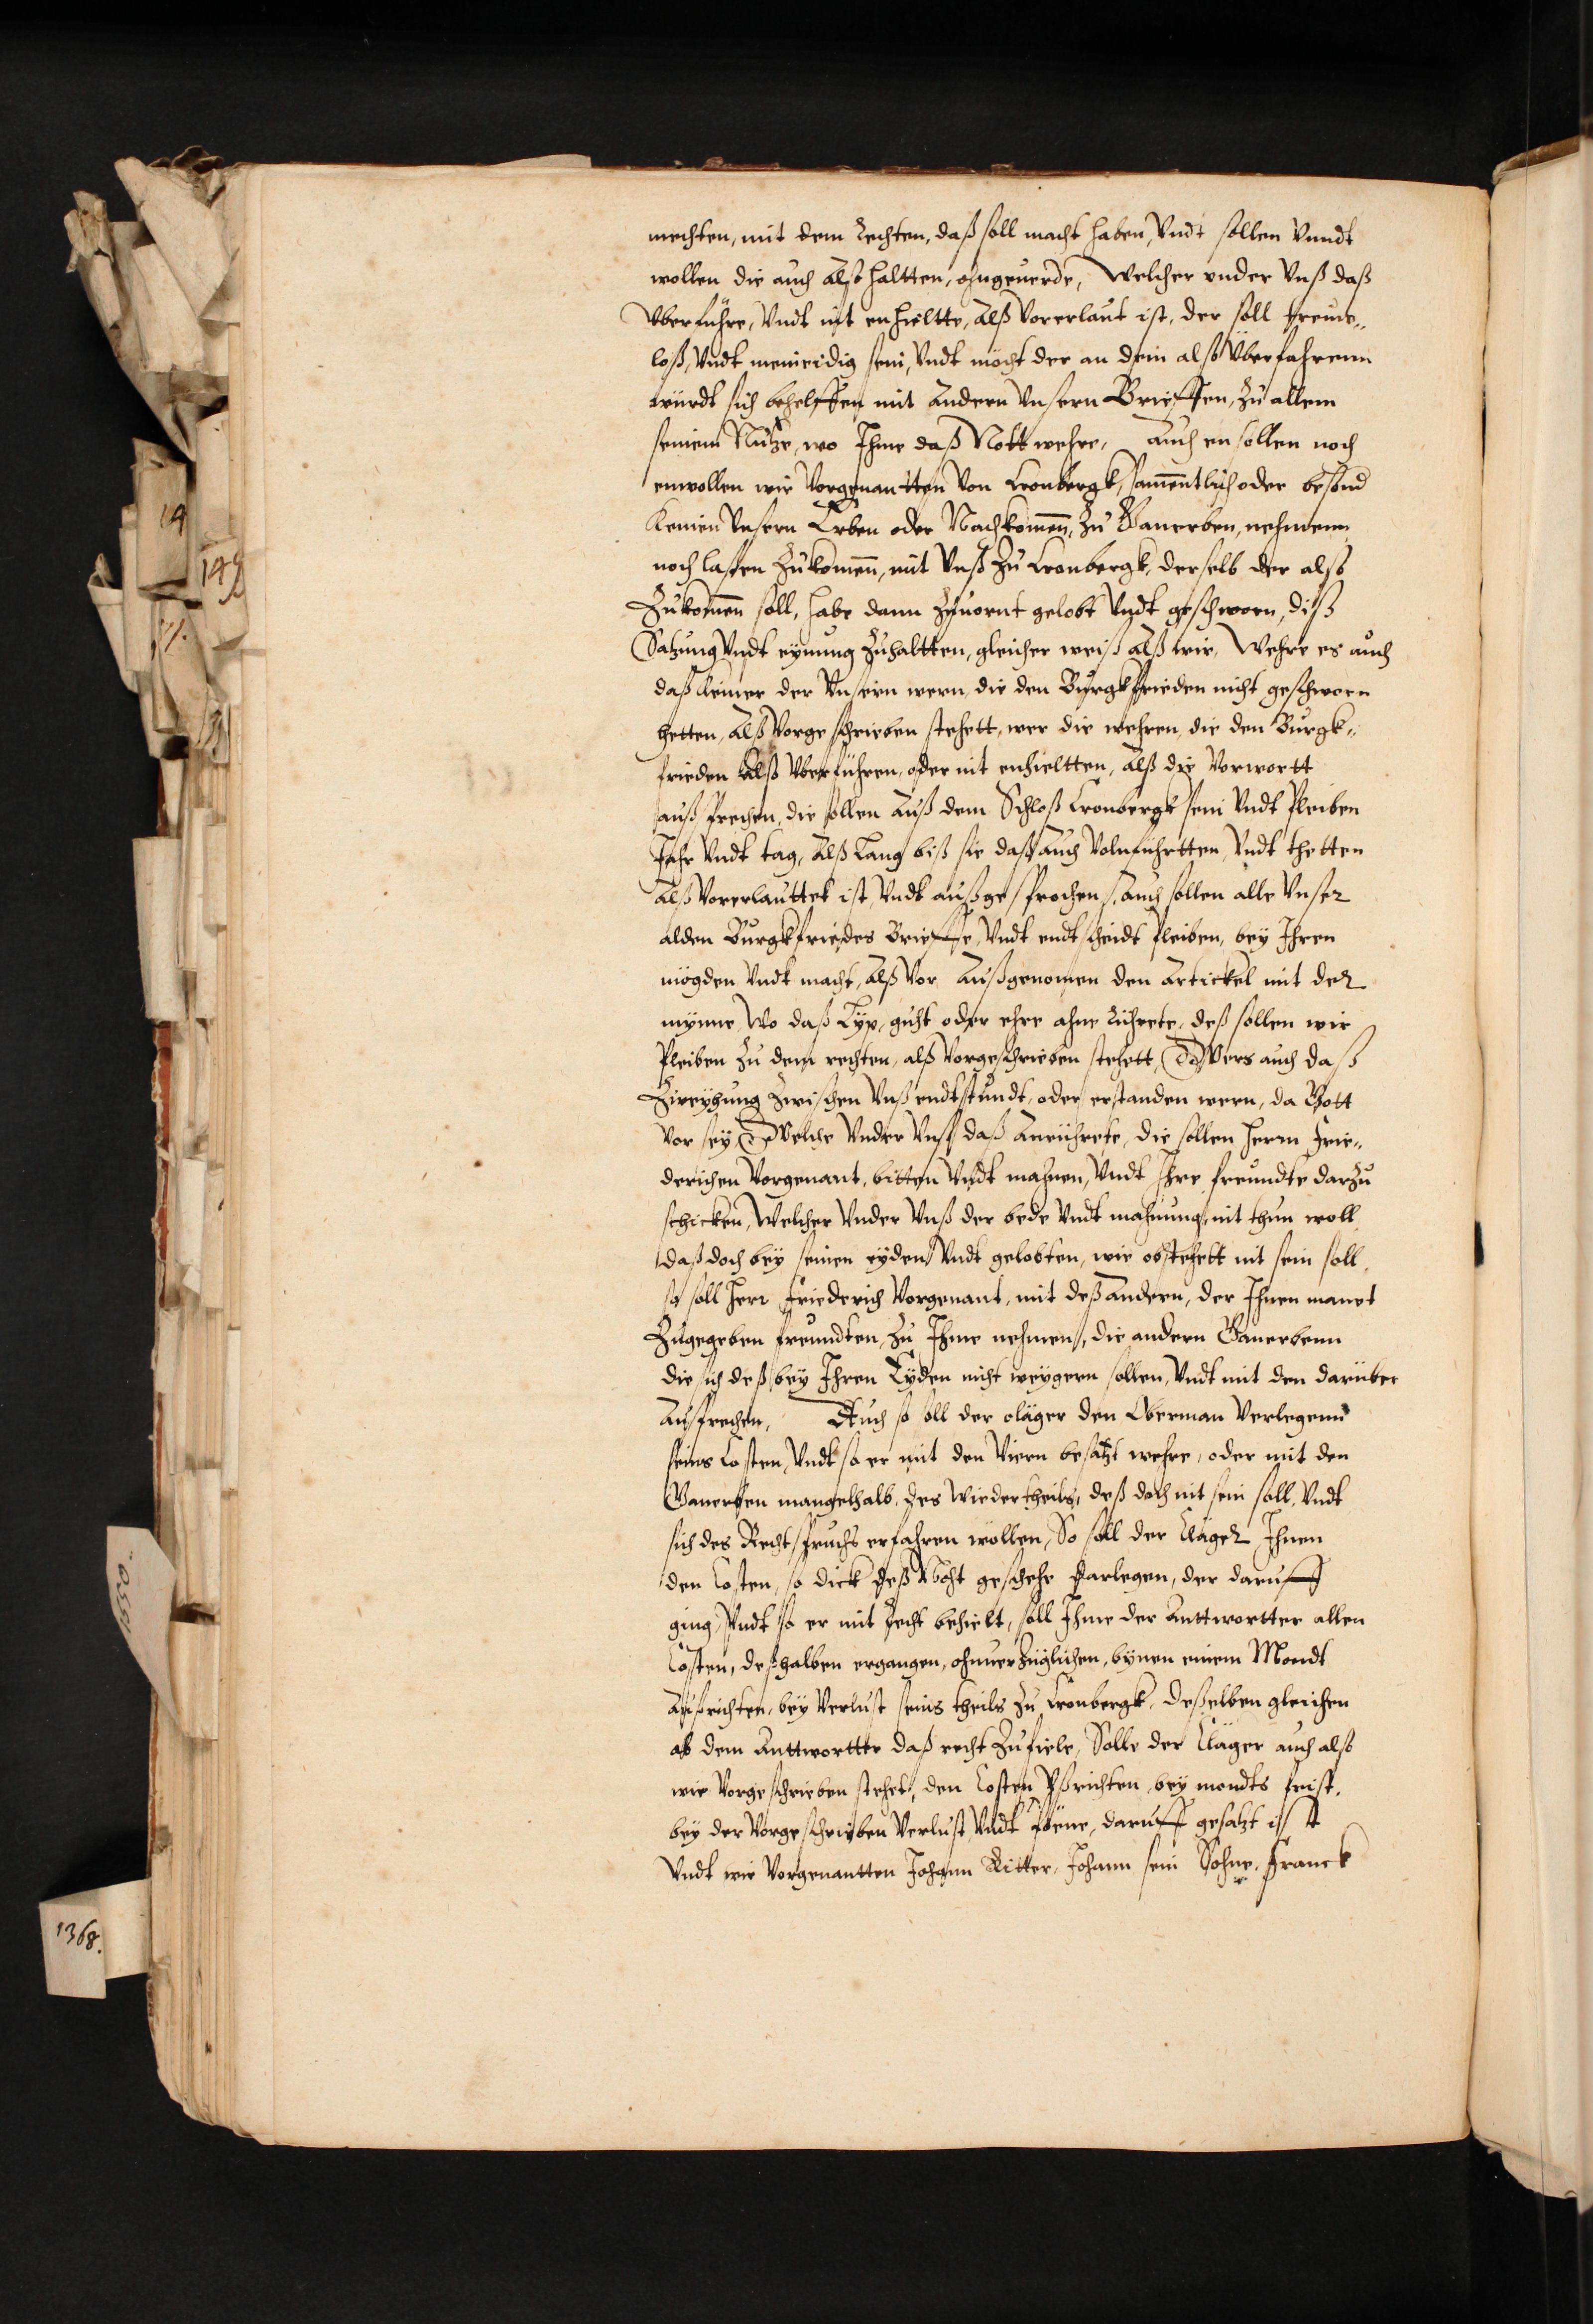 mechten, mit dem Rechten, daß soll macht haben, Vndt sollen Vnndt
wollen die auch also haltten, ohngeuerde, Welcher vnder Vnß daß
Vberführe, Vndt nit enhieltte, Alß Vorerlaut ist, der soll treuw„
loß, Vndt meineidig sein, Vndt möcht der an dem also Vberfahrenn
würdt sich behelffen mit Andern Vnsern Brieffen, zu allem
seinem Nutze, wo Ihme daß Nott wehre, Auch en sollen noch
enwollen wir Vorgenantten Von Cronbergk, samentlich oder besond
Keinen Vnsern Erben oder Nachkomen, zu Ganerben, nehmenn
noch lassen zukomen, mit Vnß zu Cronbergk, derselb der also
zukomen soll, habe dann zuuornt gelobt Vndt geschworn, diß
Satzung Vndt eynung zuhaltten, gleicher weiß alß wir, Wehre es auch
daß Keiner der Vnsern wern, die den Burgkfrieden nicht geschworn
hetten, Alß Vorgeschrieben stehett, wer die wehren, die den Burgk„
frieden Alß Vberführen, oder nit enhieltten, Alß die Vorwortt
außsprechen, die sollen Auß dem Schloß Cronbergk sein Vndt Pleiben
Jahr Vndt tag, Alß Lang biß sie daß Auch Volnführtten, Vndt thetten
Alß Vorerlauttet ist, Vndt außgesprochen, Auch sollen alle Vnser
alden Burgkfriedes Brieffe, Vndt endtscheidt Pleiben, bey Ihren
mögden Vndt macht, Alß Vor Außgenomen den Artickel mit der
mynne, Wo daß Lyp, guht oder ehre ahne Rührete, deß sollen wir
Pleiben zu dem rechten, alß Vorgeschrieben stehett, Wers auch daß
Zweyhung zwischen Vnß endtstundt, oder erstanden wern, da Gott
Vor sey, Welche Vnder Vnß daß Anrührete, die sollen Herrn Frie„
derichen Vorgenant, bitten Vndt mahnen, Vndt Ihre freundte darzu
schicken, Welcher Vnder Vnß der bede Vndt mahnung, nit thun woll
daß doch bey seinen eyden Vndt gelobten, wie obstehett nit sein soll,
so soll Herr Friederich Vorgenant, mit deß Andern, der Ihnen manet
Zugegeben freundten, zu Ihme nehmen, die andern Ganerbenn
die sich deß bey Ihren Eyden nicht weygern sollen, Vndt mit den darüber
Aussprechen, Auch so soll der cläger den Oberman Verlegenn
seins Costen, Vndt so er mit den Viern besatzt wehre, oder mit den
Ganerben mangelhalb, des Wiedertheils, deß doch nit sein soll, Vndt
sich des Rechtspruchs erfahren wöllen, So soll der Cläger Ihnen
den Costen, so dick deß Noht geschehe darlegen, der daruff
ging, Vndt so er mit Recht behielt, soll Ihme der Anttwortter allen
Costen, deßhalben ergangen, ohnuerzüglichen, bynen einem Mondt
Außrichten, bey Verlust seins theils zu Cronbergk, deßelben gleichen
ob dem Anttwortter daß recht zufiele, Solle der Cläger auch also
wie Vorgeschrieben stehet, den Costen Vßrichten bey mondts frist,
bey der Vorgeschrieben Verlust Vndt Pöene, daruff gesatzt ist
Vndt wir Vorgenantten Johann Ritter, Johann sein Sohne, Franck
149
1550.
1368.